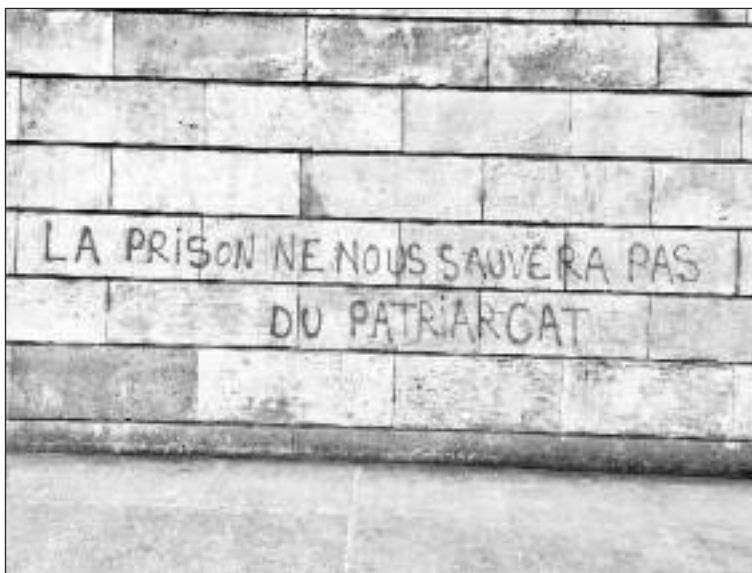 LA PRISON NE NOUS SAUVERA PAS
DU PATRIARCAT